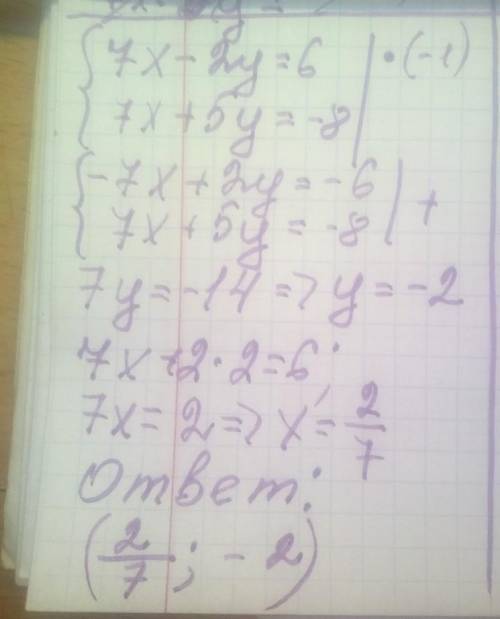 7x - 2y = 6 | · (-1)
7x + 5y = -8
-7x + 2y = -6 | +
7x + 5y = -8
7y = -14 => y = -2
7x + 2 · 2 = 6;
7x = 2 => x = 2/7
Ответ:
(2/7; - 2)